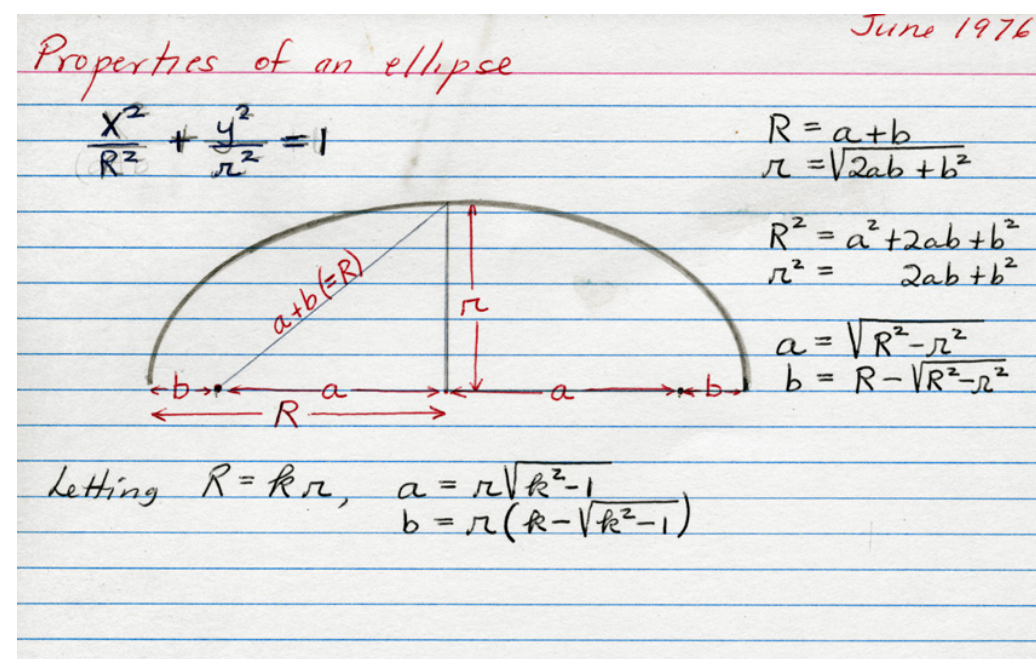 June 1976
Properties of an ellipse
x²/R² + y²/r² = 1
R = a+b
r = √(2ab + b²)
R² = a² + 2ab + b²
r² = 2ab + b²
a+b (=R)
r
a = √(R² – r²)
b = R – √(R² – r²)
b a a b
R
Letting R = kr, a = r√(k²-1)
b = r(k – √(k²-1))